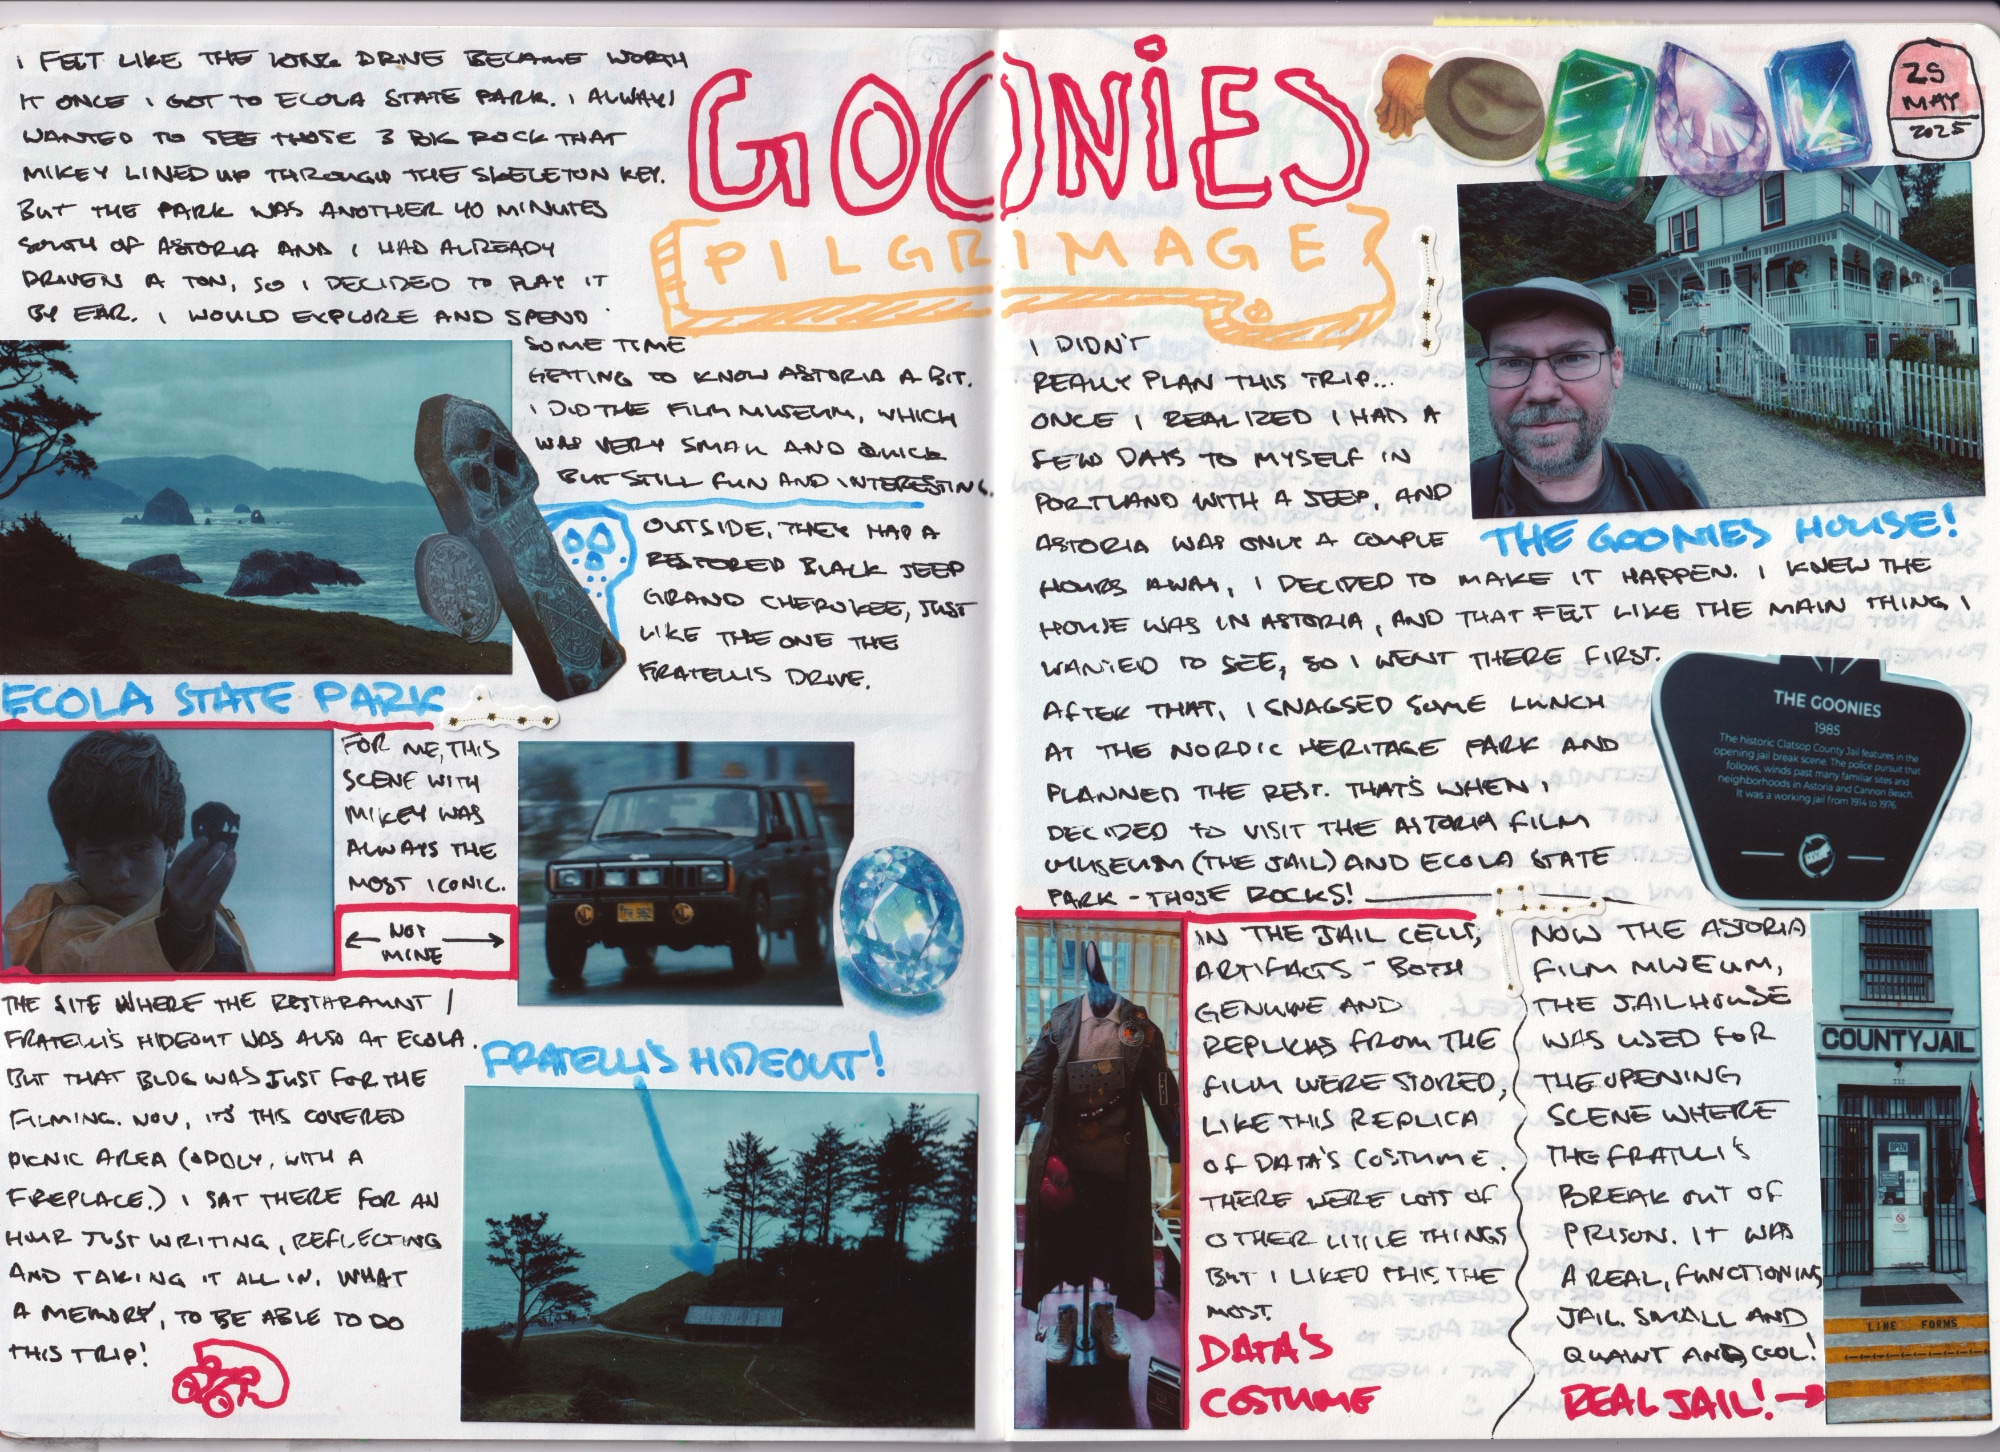 GOONIES
PILGRIMAGE
25
MAY
2025
I FELT LIKE THE LONG DRIVE BECAME WORTH
IT ONCE I GOT TO ECOLA STATE PARK. I ALWAYS
WANTED TO SEE THOSE 3 BIG ROCK THAT
MIKEY LINED UP THROUGH THE SKELETON KEY.
BUT THE PARK WAS ANOTHER 40 MINUTES
SOUTH OF ASTORIA AND I HAD ALREADY
DRIVEN A TON, SO I DECIDED TO PLAY IT
BY EAR. I WOULD EXPLORE AND SPEND
SOME TIME
GETTING TO KNOW ASTORIA A BIT.
I DID THE FILM MUSEUM, WHICH
WAS VERY SMALL AND QUICK
BUT STILL FUN AND INTERESTING.
OUTSIDE, THEY HAD A
RESTORED BLACK JEEP
GRAND CHEROKEE, JUST
LIKE THE ONE THE
FRATELLIS DRIVE.
ECOLA STATE PARK
FOR ME, THIS
SCENE WITH
MIKEY WAS
ALWAYS THE
MOST ICONIC.
← NOT →
MINE
THE SITE WHERE THE RESTARAUNT /
FRATELLI'S HIDEOUT WAS ALSO AT ECOLA.
BUT THAT BLDG WAS JUST FOR THE
FILMING. NOW, IT'S THIS COVERED
PICNIC AREA (ODDLY, WITH A
FIREPLACE.) I SAT THERE FOR AN
HOUR JUST WRITING, REFLECTING
AND TAKING IT ALL IN. WHAT
A MEMORY, TO BE ABLE TO DO
THIS TRIP!
FRATELLI'S HIDEOUT!
I DIDN'T
REALLY PLAN THIS TRIP...
ONCE I REALIZED I HAD A
FEW DAYS TO MYSELF IN
PORTLAND WITH A JEEP, AND
ASTORIA WAS ONLY A COUPLE
HOURS AWAY, I DECIDED TO MAKE IT HAPPEN. I KNEW THE
HOUSE WAS IN ASTORIA, AND THAT FELT LIKE THE MAIN THING I
WANTED TO SEE, SO I WENT THERE FIRST.
AFTER THAT, I SNAGGED SOME LUNCH
AT THE NORDIC HERITAGE PARK AND
PLANNED THE REST. THAT'S WHEN I
DECIDED TO VISIT THE ASTORIA FILM
MUSEUM (THE JAIL) AND ECOLA STATE
PARK - THOSE ROCKS!
THE GOONIES HOUSE!
THE GOONIES
1985
The historic Clatsop County Jail features in the
opening jail break scene. The police pursuit that
follows, winds past many familiar sites and
neighborhoods in Astoria and Cannon Beach.
It was a working jail from 1914 to 1976.
IN THE JAIL CELLS,
ARTIFACTS - BOTH
GENUINE AND
REPLICAS FROM THE
FILM WERE STORED,
LIKE THIS REPLICA
OF DATA'S COSTUME.
THERE WERE LOTS OF
OTHER LITTLE THINGS
BUT I LIKED THIS THE
MOST.
DATA'S
COSTUME
NOW THE ASTORIA
FILM MUSEUM,
THE JAILHOUSE
WAS USED FOR
THE OPENING
SCENE WHERE
THE FRATELLI'S
BREAK OUT OF
PRISON. IT WAS
A REAL, FUNCTIONING
JAIL. SMALL AND
QUAINT AND COOL!
REAL JAIL! →
COUNTY JAIL
732
OPEN
LINE FORMS